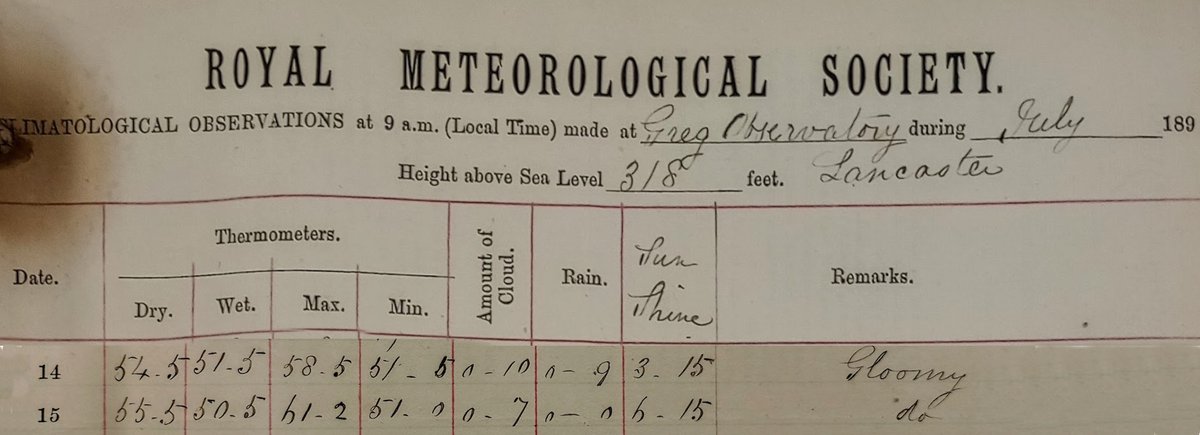 ROYAL METEOROLOGICAL SOCIETY.
CLIMATOLOGICAL OBSERVATIONS at 9 a.m. (Local Time) made at Greg Observatory during July 189
Height above Sea Level 318 feet. Lancaster
Date. Thermometers. Amount of Cloud. Rain. Sun Shine Remarks.
Dry. Wet. Max. Min.
14 54.5 51.5 58.5 51-5 0-10 0-9 3-15 Gloomy
15 55.5 50.5 61-2 51.0 0-7 0-0 6-15 do